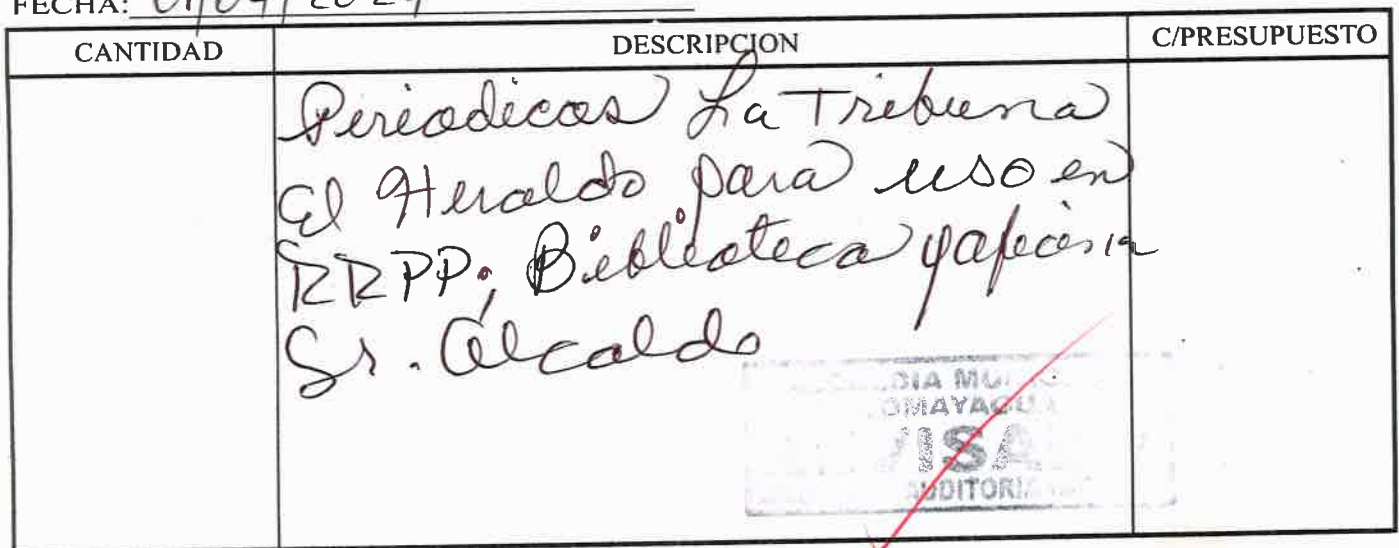 FECHA: 01/04/2024
CANTIDAD DESCRIPCION C/PRESUPUESTO
Periodicos La Tribuna
El Heraldo para uso en
RRPP; Biblioteca y oficina
Sr. Alcalde
DIA MU
OMAYAGU
VISA
AUDITORI